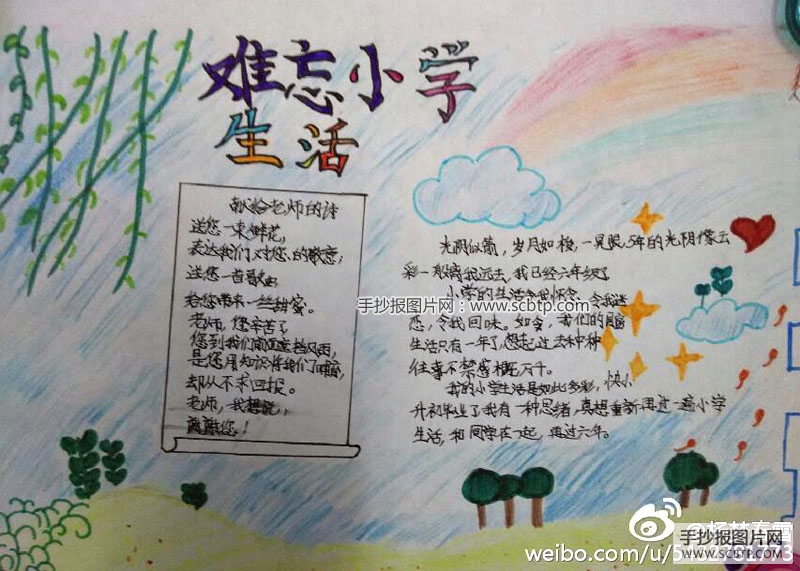 难忘小学
生活
献给老师的诗
送您一束鲜花,
表达我们对您的敬意;
送您一首歌
给您带来一丝甜蜜。
老师,您辛苦了
您到我们 遮挡风雨,
是您用知识将我们
却从不求回报。
老师,我想说:
您!
光阴似箭,岁月如梭,一晃眼5年的光阴像云
彩一 我远去,我已经六年级了
小学的生活令我怀念,令我迷
恋,令我回味。如今,我们的
生活只有一年了,想起过去种种
往事不禁感慨万千。
我的小学生活是如此多彩,快小
升初毕业了我有一种思绪,真想重新再过一遍小学
生活,和同学在一起,再过六年。
手抄报图片网:
www.scbtp.com
weibo.com/u/5
手抄报图片网
WWW.SCBTP.COM